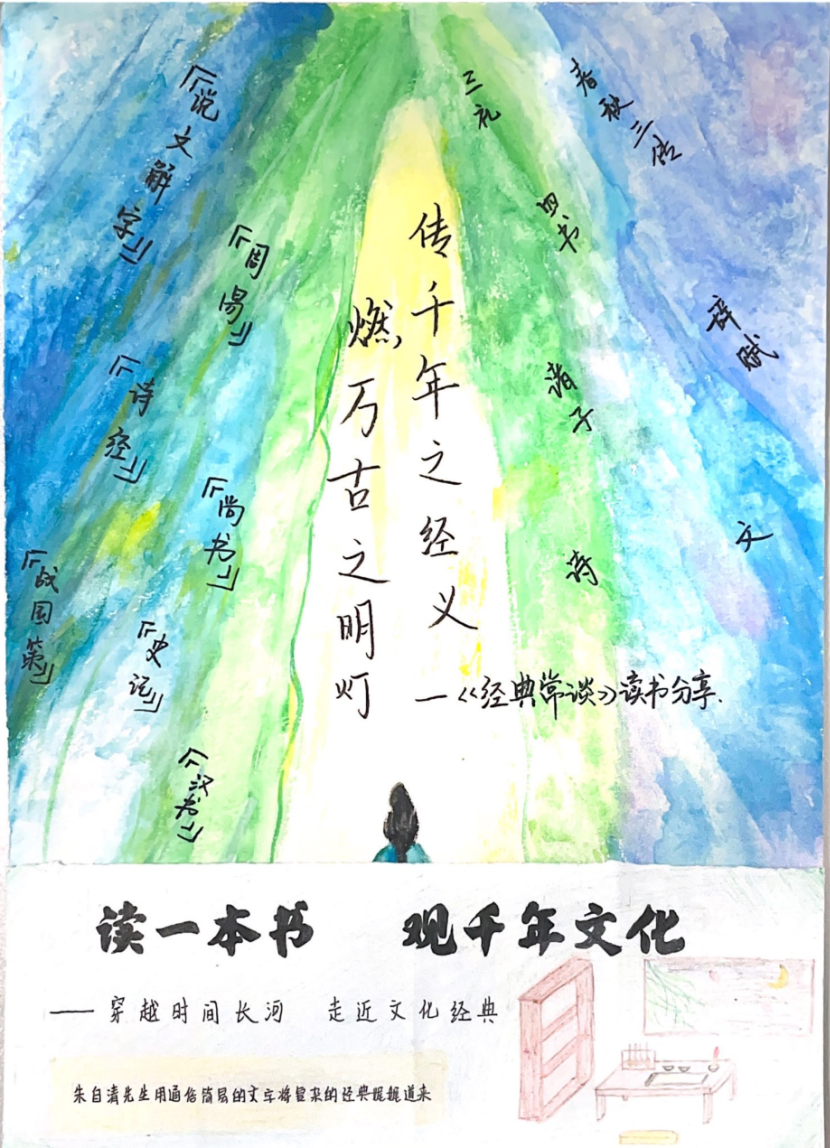 『说文解字』
『周易』
『诗经』
『尚书』
『战国策』
『史记』
『汉书』
三礼
春秋三传
四书
辞赋
诸子
诗
文
传千年之经义
燃万古之明灯
—《经典常谈》读书分享.
读一本书 观千年文化
——穿越时间长河 走近文化经典
朱自清先生用通俗简易的文字将复杂的经典娓娓道来